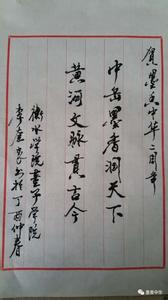 贺墨香中华二周年
中岳墨香润天下
黄河文脉贯古今
衡水学院董子学院
李奎良书于丁酉仲春
墨香中华